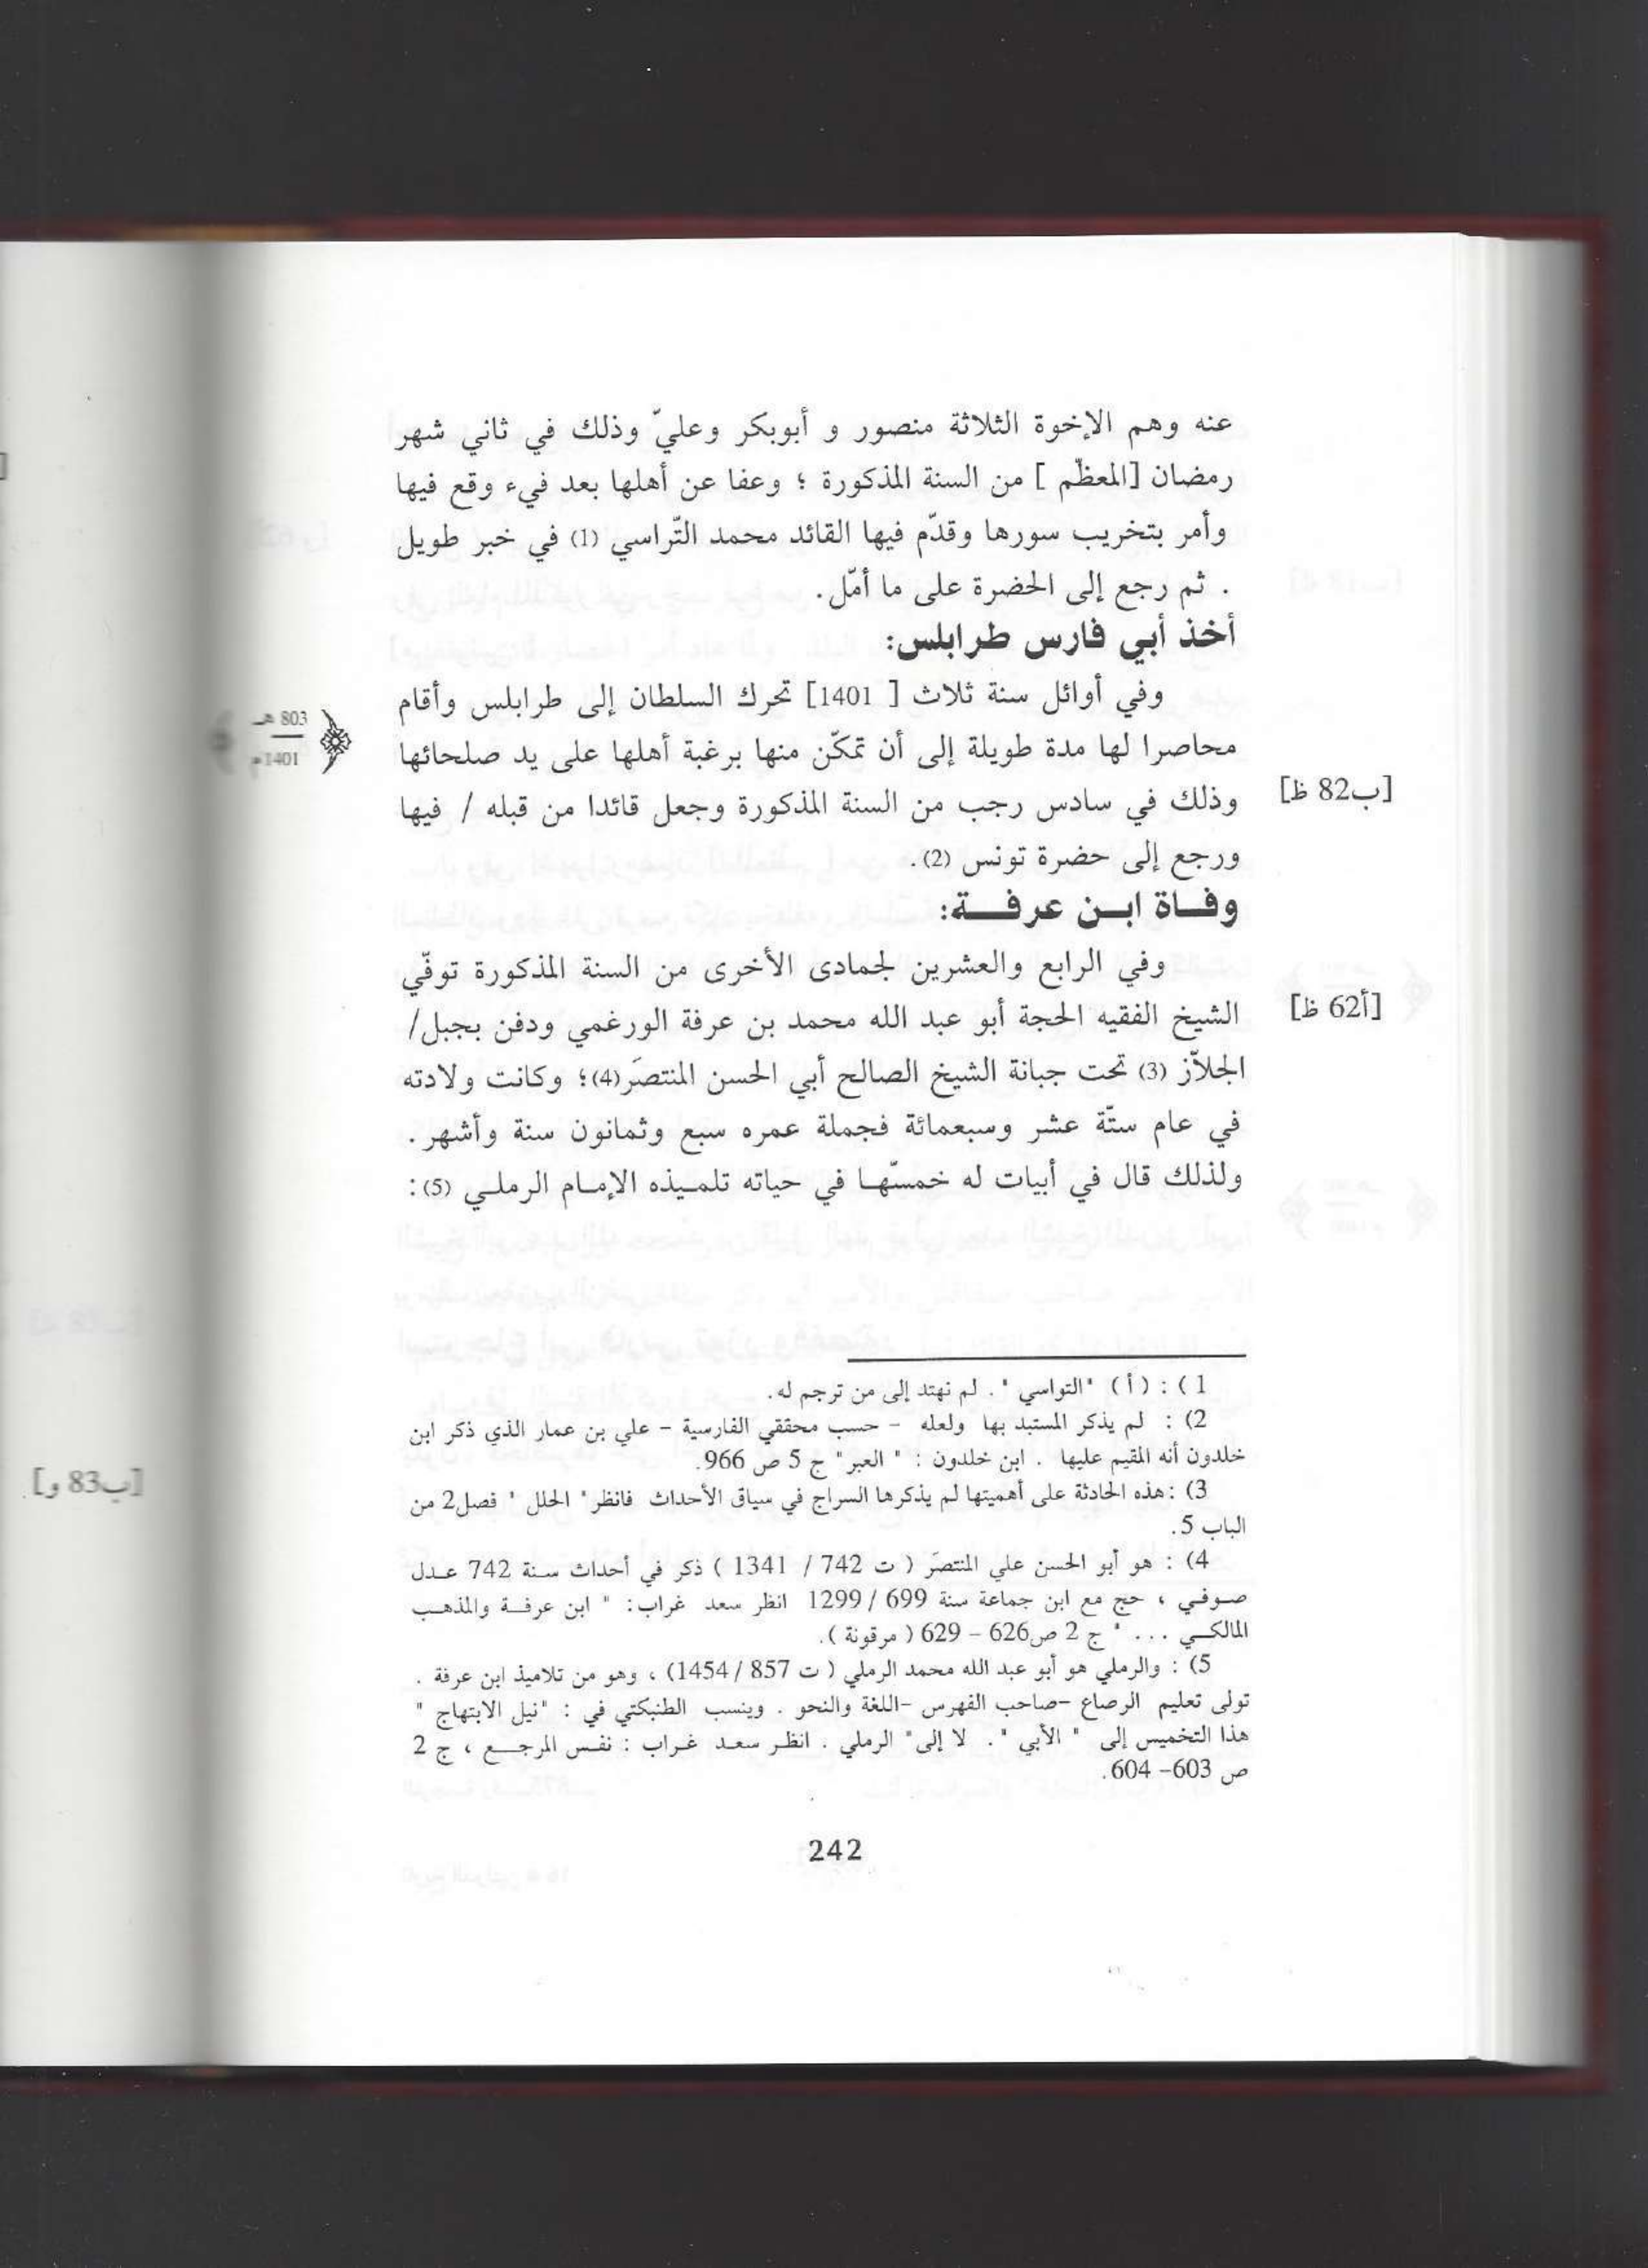 عنه وهم الإخوة الثلاثة منصور و أبوبكر وعليّ وذلك في ثاني شهر
رمضان [المعظّم ] من السنة المذكورة ؛ وعفا عن أهلها بعد فيء وقع فيها
وأمر بتخريب سورها وقدّم فيها القائد محمد التّراسي (1) في خبر طويل
. ثم رجع إلى الحضرة على ما أمّل.
أخذ أبي فارس طرابلس:
وفي أوائل سنة ثلاث [ 1401] تحرك السلطان إلى طرابلس وأقام
803 هـ
1401م
محاصرا لها مدة طويلة إلى أن تمكّن منها برغبة أهلها على يد صلحائها
[ب82 ظ]
وذلك في سادس رجب من السنة المذكورة وجعل قائدا من قبله / فيها
ورجع إلى حضرة تونس (2).
وفـاة ابـن عرفـة:
وفي الرابع والعشرين لجمادى الأخرى من السنة المذكورة توفّي
[أ62 ظ]
الشيخ الفقيه الحجة أبو عبد الله محمد بن عرفة الورغمي ودفن بجبل/
الجلاّز (3) تحت جبانة الشيخ الصالح أبي الحسن المنتصَر(4)؛ وكانت ولادته
في عام ستّة عشر وسبعمائة فجملة عمره سبع وثمانون سنة وأشهر.
ولذلك قال في أبيات له خمسّهـا في حياته تلمـيذه الإمـام الرملـي (5):
1 ) : ( أ ) "التواسي ". لم نهتد إلى من ترجم له.
2) : لم يذكر المستبد بها ولعله - حسب محققي الفارسية - علي بن عمار الذي ذكر ابن
خلدون أنه المقيم عليها . ابن خلدون : " العبر" ج 5 ص 966.
3) :هذه الحادثة على أهميتها لم يذكرها السراج في سياق الأحداث فانظر" الحلل " فصل2 من
الباب 5.
4) : هو أبو الحسن علي المنتصَر ( ت 742 / 1341 ) ذكر في أحداث سـنة 742 عـدل
صـوفـي ، حج مع ابن جماعة سنة 699 / 1299 انظر سعد غراب: " ابن عرفـة والمذهـب
المالكـي ... " ج 2 ص626 - 629 ( مرقونة ).
5) : والرملي هو أبو عبد الله محمد الرملي ( ت 857 / 1454) ، وهو من تلاميذ ابن عرفة .
تولى تعليم الرصاع -صاحب الفهرس -اللغة والنحو . وينسب الطنبكتي في : "نيل الابتهاج "
هذا التخميس إلى " الأبي ". لا إلى" الرملي . انظـر سعـد غـراب : نفـس المرجـع ، ج 2
ص 603- 604.
242
[ب83 و]